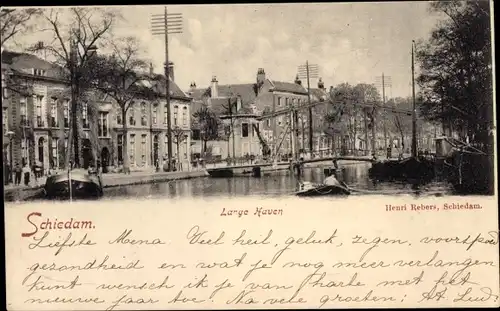 Lange Haven
Henri Rebers, Schiedam.
Schiedam.
Liefste Mena Veel heil, geluk, zegen, voorspoed
gezondheid en wat je nog meer verlangen
kunt wensch ik je van harte met het
nieuwe jaar toe. Na vele groeten;